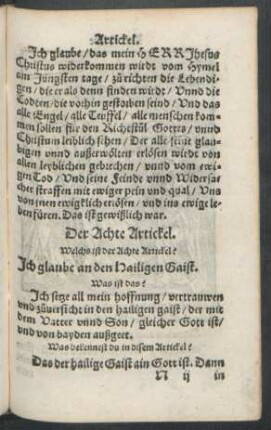 Artickel.
Ich glaube / das mein HERR Jhesus
Christus widerkommen wirdt vom Hymel
am Jüngsten tage / zů richten die Lebendi-
gen / die er als denn finden wirdt / Vnnd die
Todten / die vorhin gestorben seind / Vnd das
alle Engel / alle Teüffel / alle menschen kom-
men sollen für den Richtstůl Gottes / vnnd
Christum leiblich sehen / Der alle seine glau-
bigen vnnd außerwölten erlösen wirdt von
allen leyblichen gebrechen / vnnd vom ewi-
gen Tod / Vnd seine Feinde vnnd Widersa-
cher straffen mit ewiger pein vnd qual / Vns
von jnen ewigklich erlösen / vnd ins ewige le-
ben füren. Das ist gewißlich war.
Der Achte Artickel.
Welchs ist der Achte Artickel?
Ich glaube an den Hailigen Gaist.
Was ist das?
Ich setze all mein hoffnung / vertrauwen
vnd zůuersicht in den hailigen gaist / der mit
dem Vatter vnnd Son / gleicher Gott ist /
vnd von bayden außgeet.
Was bekennest du in disem Artickel?
Das der hailige Gaist ain Gott ist. Dann
N ij in